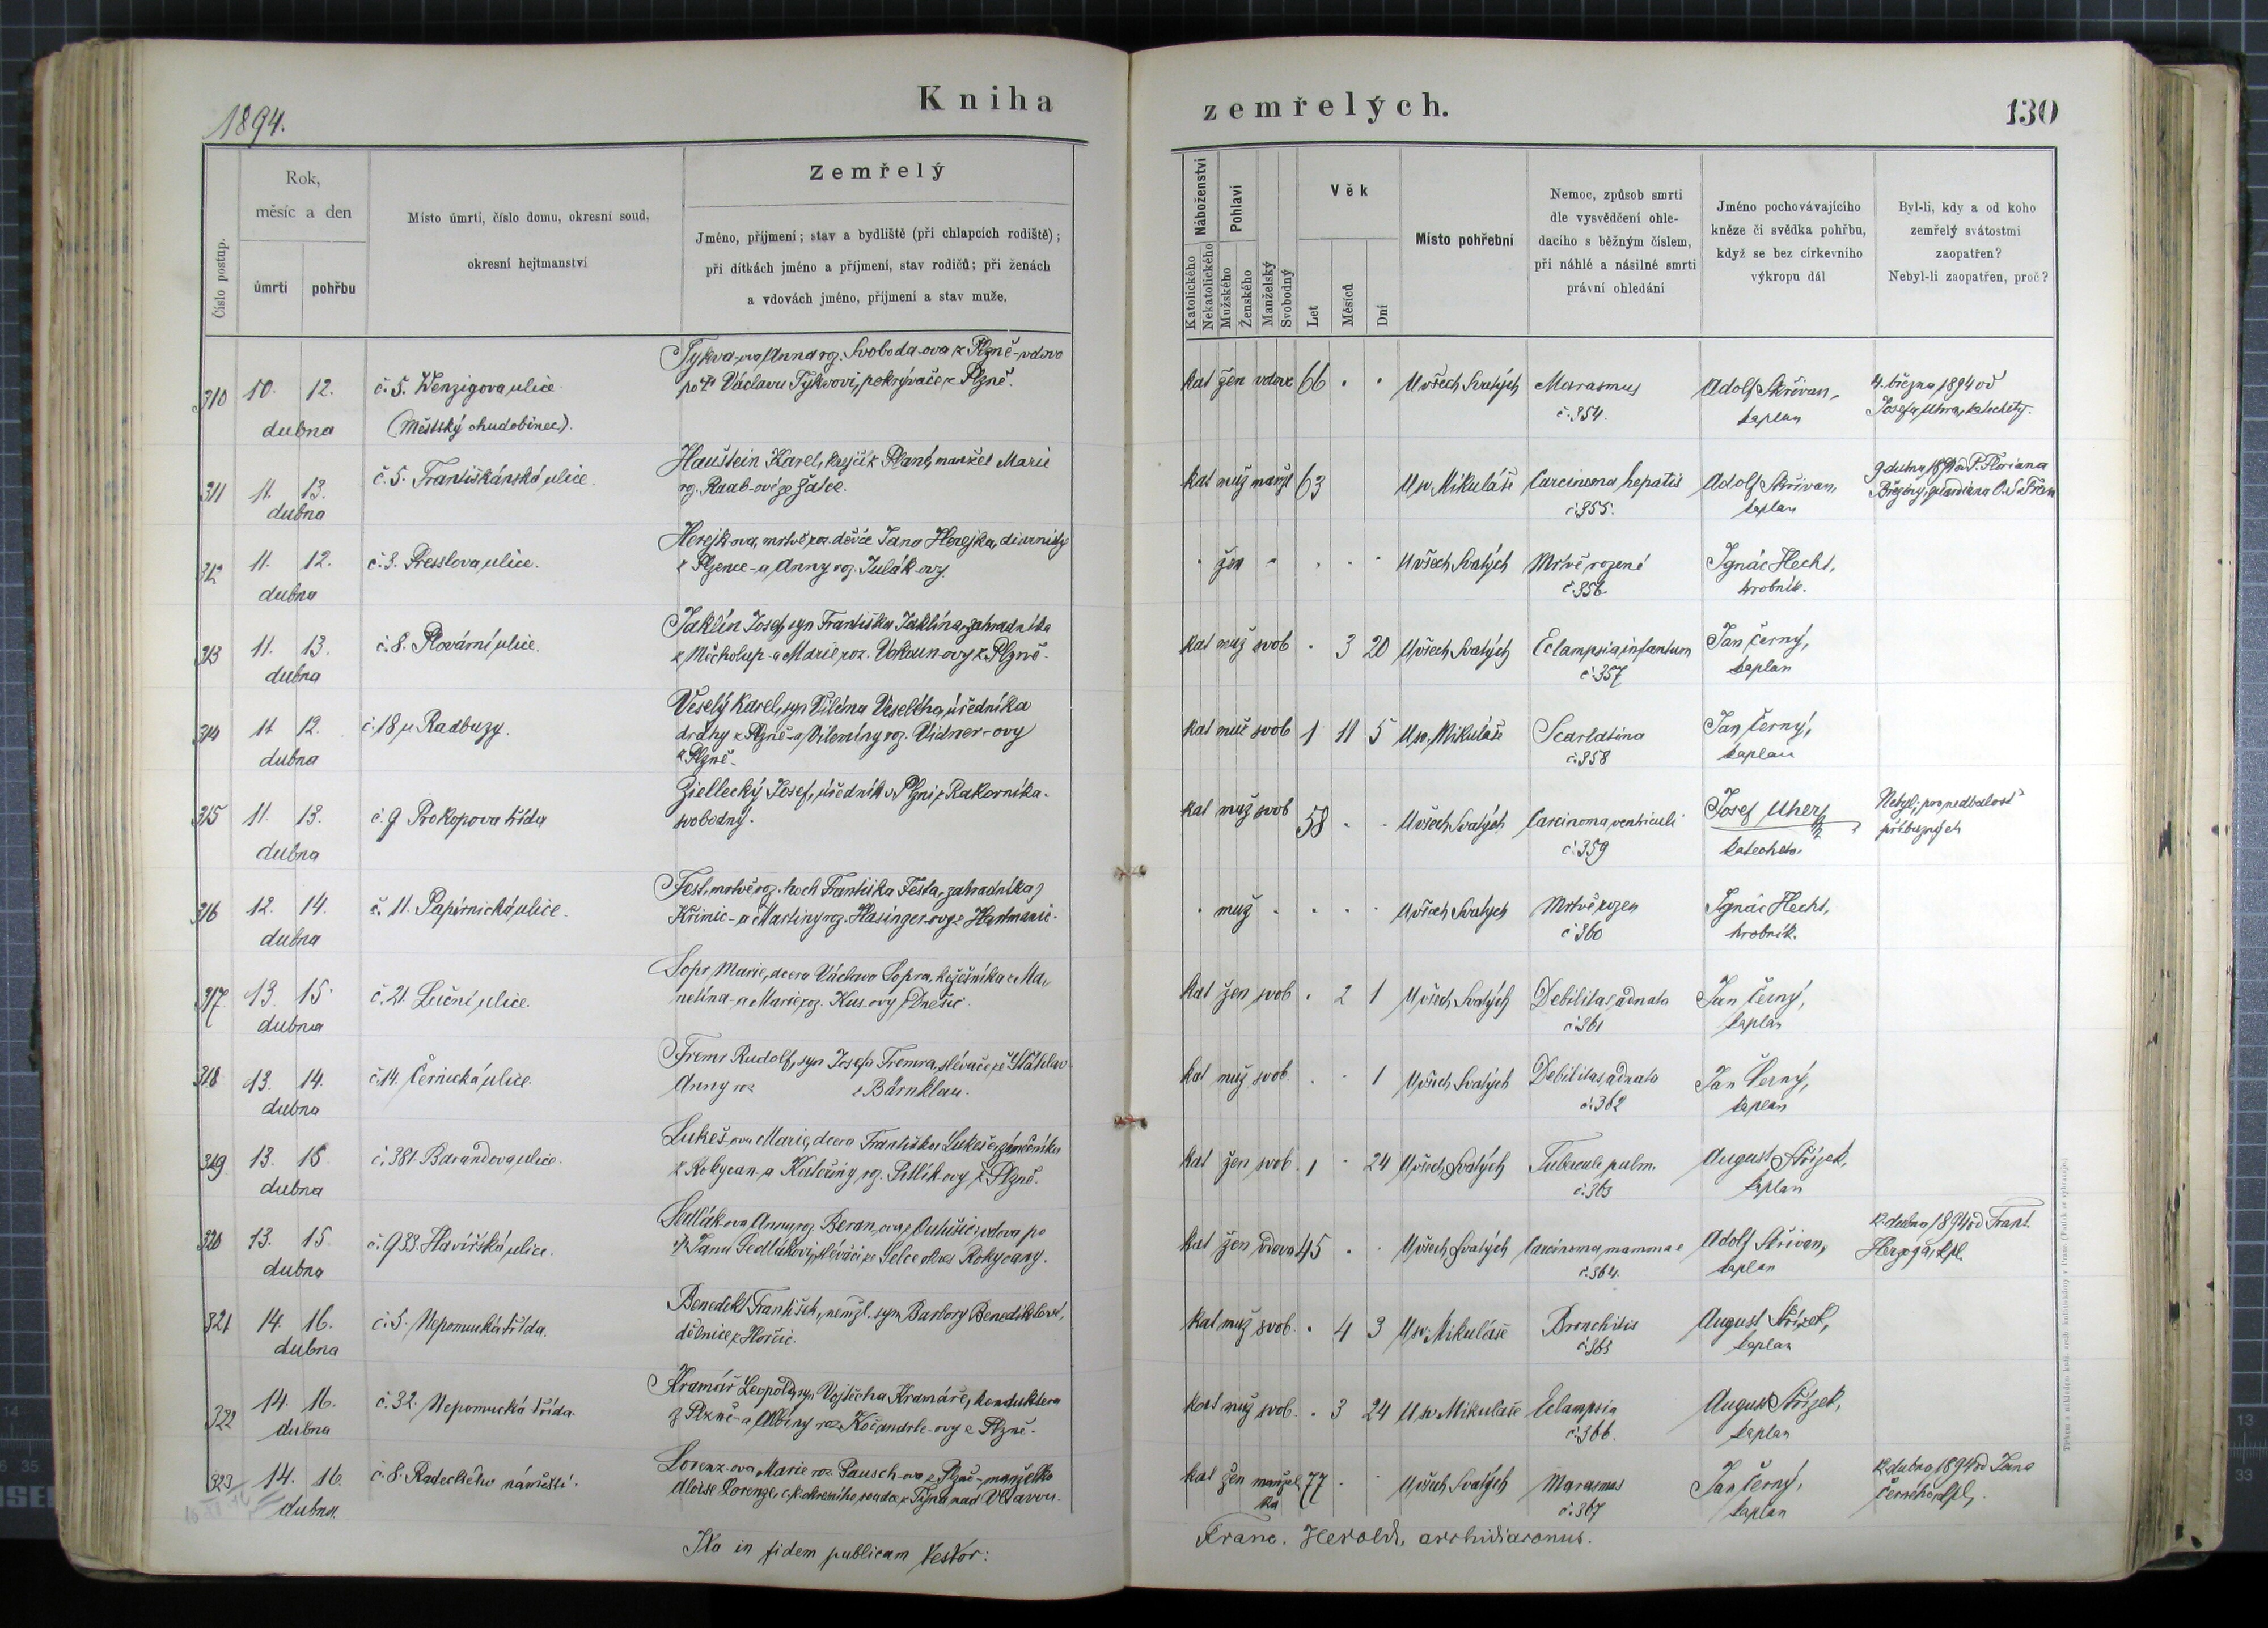 1894.
Kniha
zemřelých.
130
Číslo postup.
Rok,
měsíc a den
úmrtí
pohřbu
Místo úmrtí, číslo domu, okresní soud,
okresní hejtmanství
Zemřelý
Jméno, příjmení; stav a bydliště (při chlapcích rodiště);
při dítkách jméno a příjmení, stav rodičů; při ženách
a vdovách jméno, příjmení a stav muže.
Náboženství
Katolického
Nekatolického
Pohlaví
Mužského
Ženského
Manželský
Svobodný
Věk
Let
Měsíců
Dní
Místo pohřební
Nemoc, způsob smrti
dle vysvědčení ohle-
dacího s běžným číslem,
při náhlé a násilné smrti
právní ohledání
Jméno pochovávajícího
kněze či svědka pohřbu,
když se bez církevního
výkropu dál
Byl-li, kdy a od koho
zemřelý svátostmi
zaopatřen?
Nebyl-li zaopatřen, proč?
310 10. 12. dubna
č. 5. Wenzigova ulice
(Městský chudobinec).
Tykva-ova Anna roz. Svoboda-ova z Plzně - vdova
po Václavu Tykvovi, pokrývače z Plzně.
kat žen vdova 66 . . U všech Svatých Marasmus č. 354. Adolf Skřivan, kaplan
4. března 1894 od
Josefa Uhra, katechety.
311 11. 13. dubna
č. 5. Františkánská ulice.
Haustein Karel, krejčí z Plané, manžel Marie
roz. Raab-ové ze Žatce.
kat muž manžl 63 U sv. Mikuláše Carcinoma hepatis č. 355. Adolf Skřivan, kaplan
9 dubna 1894 od P. Floriana
312 11. 12. dubna
č. 8. Presslova ulice.
Herejk-ova, mrtvě roz. děvče Jana Herejka, diurnisty
z Plzence - a Anny roz. Julák-ovy.
. žen . . . . U všech Svatých Mrtvě rozené č. 356. Ignác Hecht, hrobník.
313 11. 13. dubna
č. 8. Plovární ulice.
Jaklín Josef, syn Františka Jaklína, zahradníka
z Měcholup - a Marie roz. Vokoun-ovy z Plzně.
kat muž svob . 3 20 U všech Svatých Eclampsia infantum č. 357 Jan Černý, kaplan
314 11 12. dubna
č. 18 u Radbuzy.
Veselý Karel, syn Viléma Veselého, úředníka
dráhy z Plzně - a Vilemíny roz. Vidner-ovy
z Plzně.
kat muž svob 1 11 5 U sv. Mikuláše Scarlatina č. 358 Jan Černý, kaplan
315 11. 13. dubna
č. 9 Prokopova třída
Ziellecký Josef, úředník v Plzni z Rakovníka.
svobodný.
kat muž svob 58 . . U všech Svatých Carcinoma ventriculi č. 359 Josef Uher, katecheta.
Nebyl, pro nedbalost
příbuzných
316 12. 14. dubna
č. 11. Papírnická ulice.
Fest, mrtvě roz. hoch Františka Festa, zahradníka z
Křimic - a Martiny roz. Hasinger-ovy z Hartmanic.
. muž . . . . U všech Svatých Mrtvě rozen č. 360 Ignác Hecht, hrobník.
317 13. 15. dubna
č. 21. Luční ulice.
Sopr Marie, dcera Václava Sopra, kožešníka z Ma-
netína - a Marie roz. Kus-ovy z Dnešic.
kat žen svob . 2 1 U všech Svatých Debilitas adnata č. 361 Jan Černý, kaplan
318 13. 14. dubna
č. 14. Černická ulice.
Fremr Rudolf, syn Josefa Fremra, slévače ze Štáhlav
Anny roz z Bärnklau.
kat muž svob . . 1 U všech Svatých Debilitas adnata č. 362 Jan Černý, kaplan
319 13. 15 dubna
č. 381. Barandova ulice.
Lukeš-ova Marie, dcera Františka Lukeše, zámečníka
z Rokycan - a Kateřiny roz. Pitlík-ovy z Plzně.
kat žen svob. 1 . 24 U všech Svatých Tubercul. pulm. č. 363 August Střízek, kaplan
320 13. 15. dubna
č. 933. Havířská ulice.
Sedlák-ova Anna roz. Beran-ova, vdova po
Janu Sedlákovi, slévači ze Selce okres Rokycany.
kat žen vdova 45 . . U všech Svatých Carcinoma mammae č. 364. Adolf Skřivan, kaplan
12. dubna 1894 od Frant.
Herzoga, kpl.
321 14. 16. dubna
č. 5. Nepomucká třída.
Benedikt František, nemžl. syn Barbory Benediktové,
dělnice z Horčic.
kat muž svob. . 4 3 U sv. Mikuláše Bronchitis č. 365 August Střízek, kaplan
322 14. 16. dubna
č. 32. Nepomucká třída.
Kramář Leopold, syn Vojtěcha Kramáře, konduktera
z Plzně - a Albíny roz. Kočandrle-ovy z Plzně.
kat muž svob. . 3 24 U sv. Mikuláše Eclampsia č. 366. August Střízek, kaplan
323 14. 16. dubna.
č. 8. Radeckého náměstí.
Lorenz-ova Marie roz. Pausch-ova z Plzně - manželka
Aloise Lorenze, c. k. okresního soudce z Týna nad Vltavou.
kat žen manžel ka 77 . . U všech Svatých Marasmus č. 367 Jan Černý, kaplan
12. dubna 1894 od Jana
Černého, kpl.
Ita in fidem publicam testor:
Franc. Herold, archidiaconus.